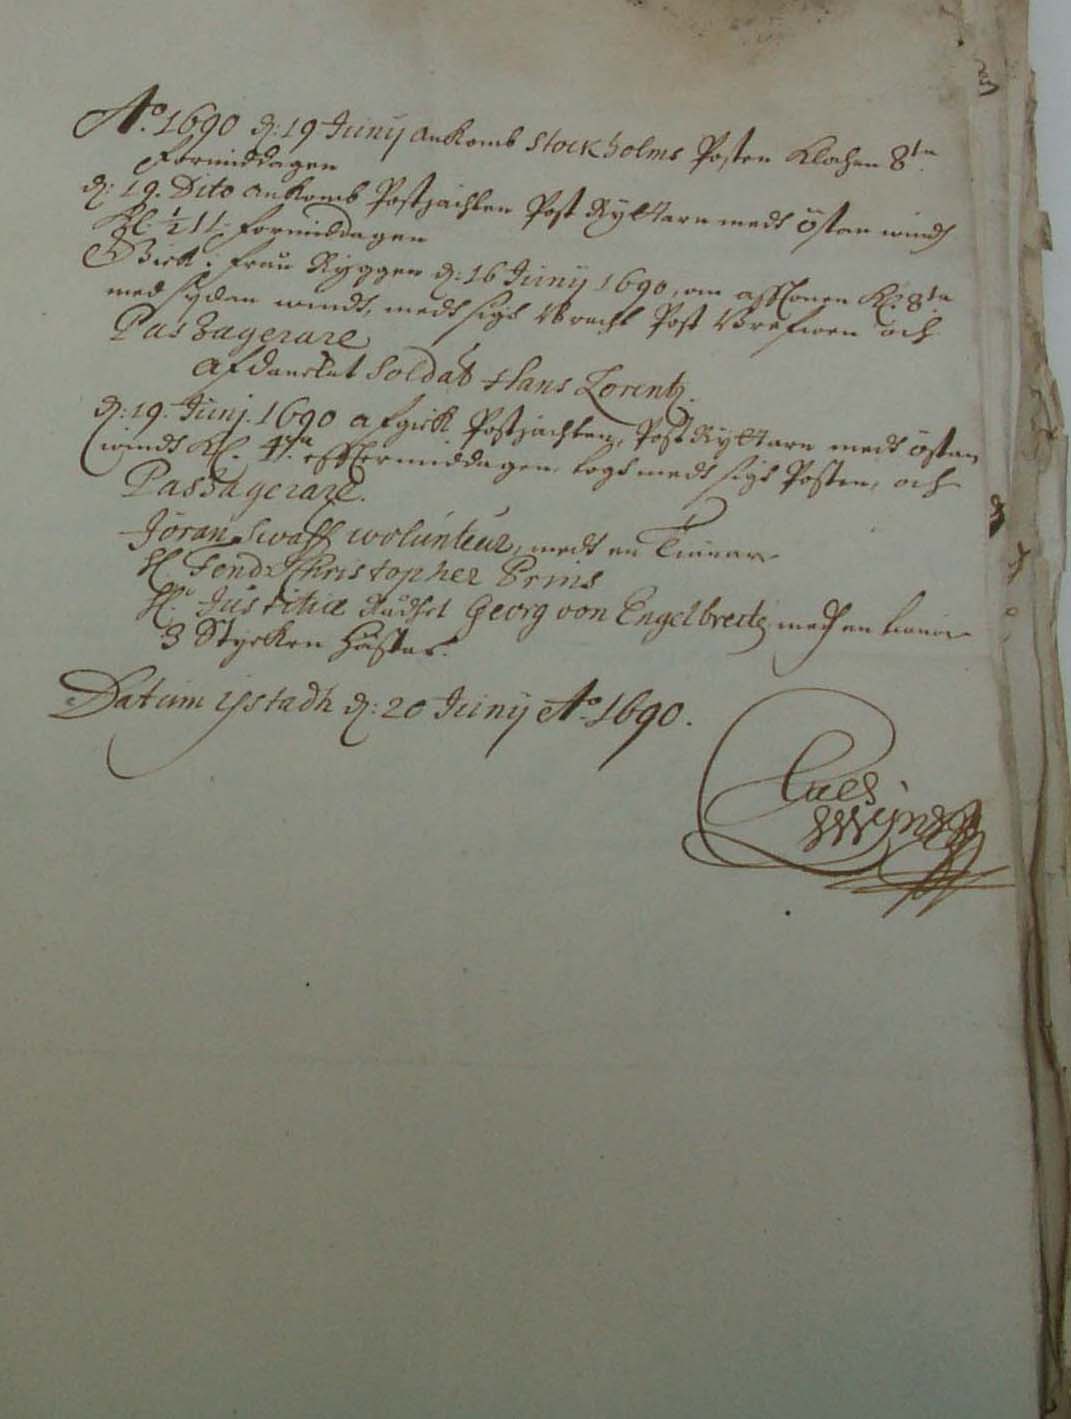 Ao. 1690 d: 19 Junij ankomb Stockholms Posten Klocken 8ta
formiddagen
d: 19. Dito ankomb Postjachten Post Ryttarn medt östan windt
Kl: ½ 11: formiddagen
Gick ifrån Ryggen d: 16 Junij 1690, om afftonen Kl. 8ta
med sydan windt, medt sigh bracht Post brefwen och
Paszagerare
afdancket Soldat Hans Lorentz.
d: 19. Junj. 1690 afgick Postjachten, Post Ryttarn medt östan
windt Kl. 4ta efftermiddagen, togh medt sigh Posten, och
Paszagerare.
Jöran Swaff wolunteur, medt en Tienare
H. Fend: Christopher Prins
Hr. Justitiæ Rådhet Georg von Engelbrecte, medh en tienare
3 Stycken hästar.
Datum Ystadh d: 20 Junij Ao. 1690.
Claes